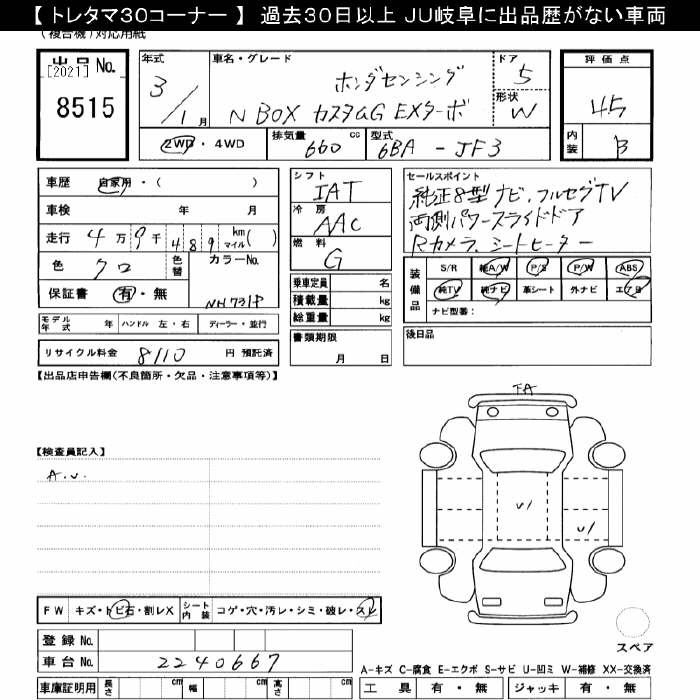 【 トレタマ30コーナー 】 過去30日以上 JU岐阜に出品歴がない車両
(複合機)対応用紙
出品 No.
[2021]
8515
年式
3/1月
車名・グレード
ホンダセンシング
N BOX カスタムG EXターボ
ドア
5
形状
W
評価点
4.5
内装
B
2WD・4WD
排気量 660 cc
型式 6BA - JF3
車歴 自家用・( )
車検 年 月
走行 4万9千489 km マイル( )
色 クロ
色替
カラーNo.
NH731P
保証書 有・無
モデル年式 年 ハンドル 左・右 ディーラー・並行
リサイクル料金 8110 円 預託済
シフト
IAT
冷房
AAC
燃料
G
乗車定員 名
積載量 kg
総重量 kg
書類期限
月 日
セールスポイント
純正8型ナビ、フルセグTV
両側パワースライドドア
Rカメラ、シートヒーター
装備品
S/R 純A/W P/S P/W ABS
純TV 純ナビ 革シート 外ナビ エアB
ナビ型番:
後日品
【出品店申告欄(不良箇所・欠品・注意事項等)】
FA
【検査員記入】
A.U.
U1
U1
スペア
FW キズ・トビ石・割レX シート内装 コゲ・穴・汚レ・シミ・破レ・スレ
登録 No.
車台 No. 2240667
車庫証明用 長さ cm 幅 cm 高さ cm
A-キズ C-腐食 E-エクボ S-サビ U-凹ミ W-補修 XX-交換済
工具 有・無 ジャッキ 有・無